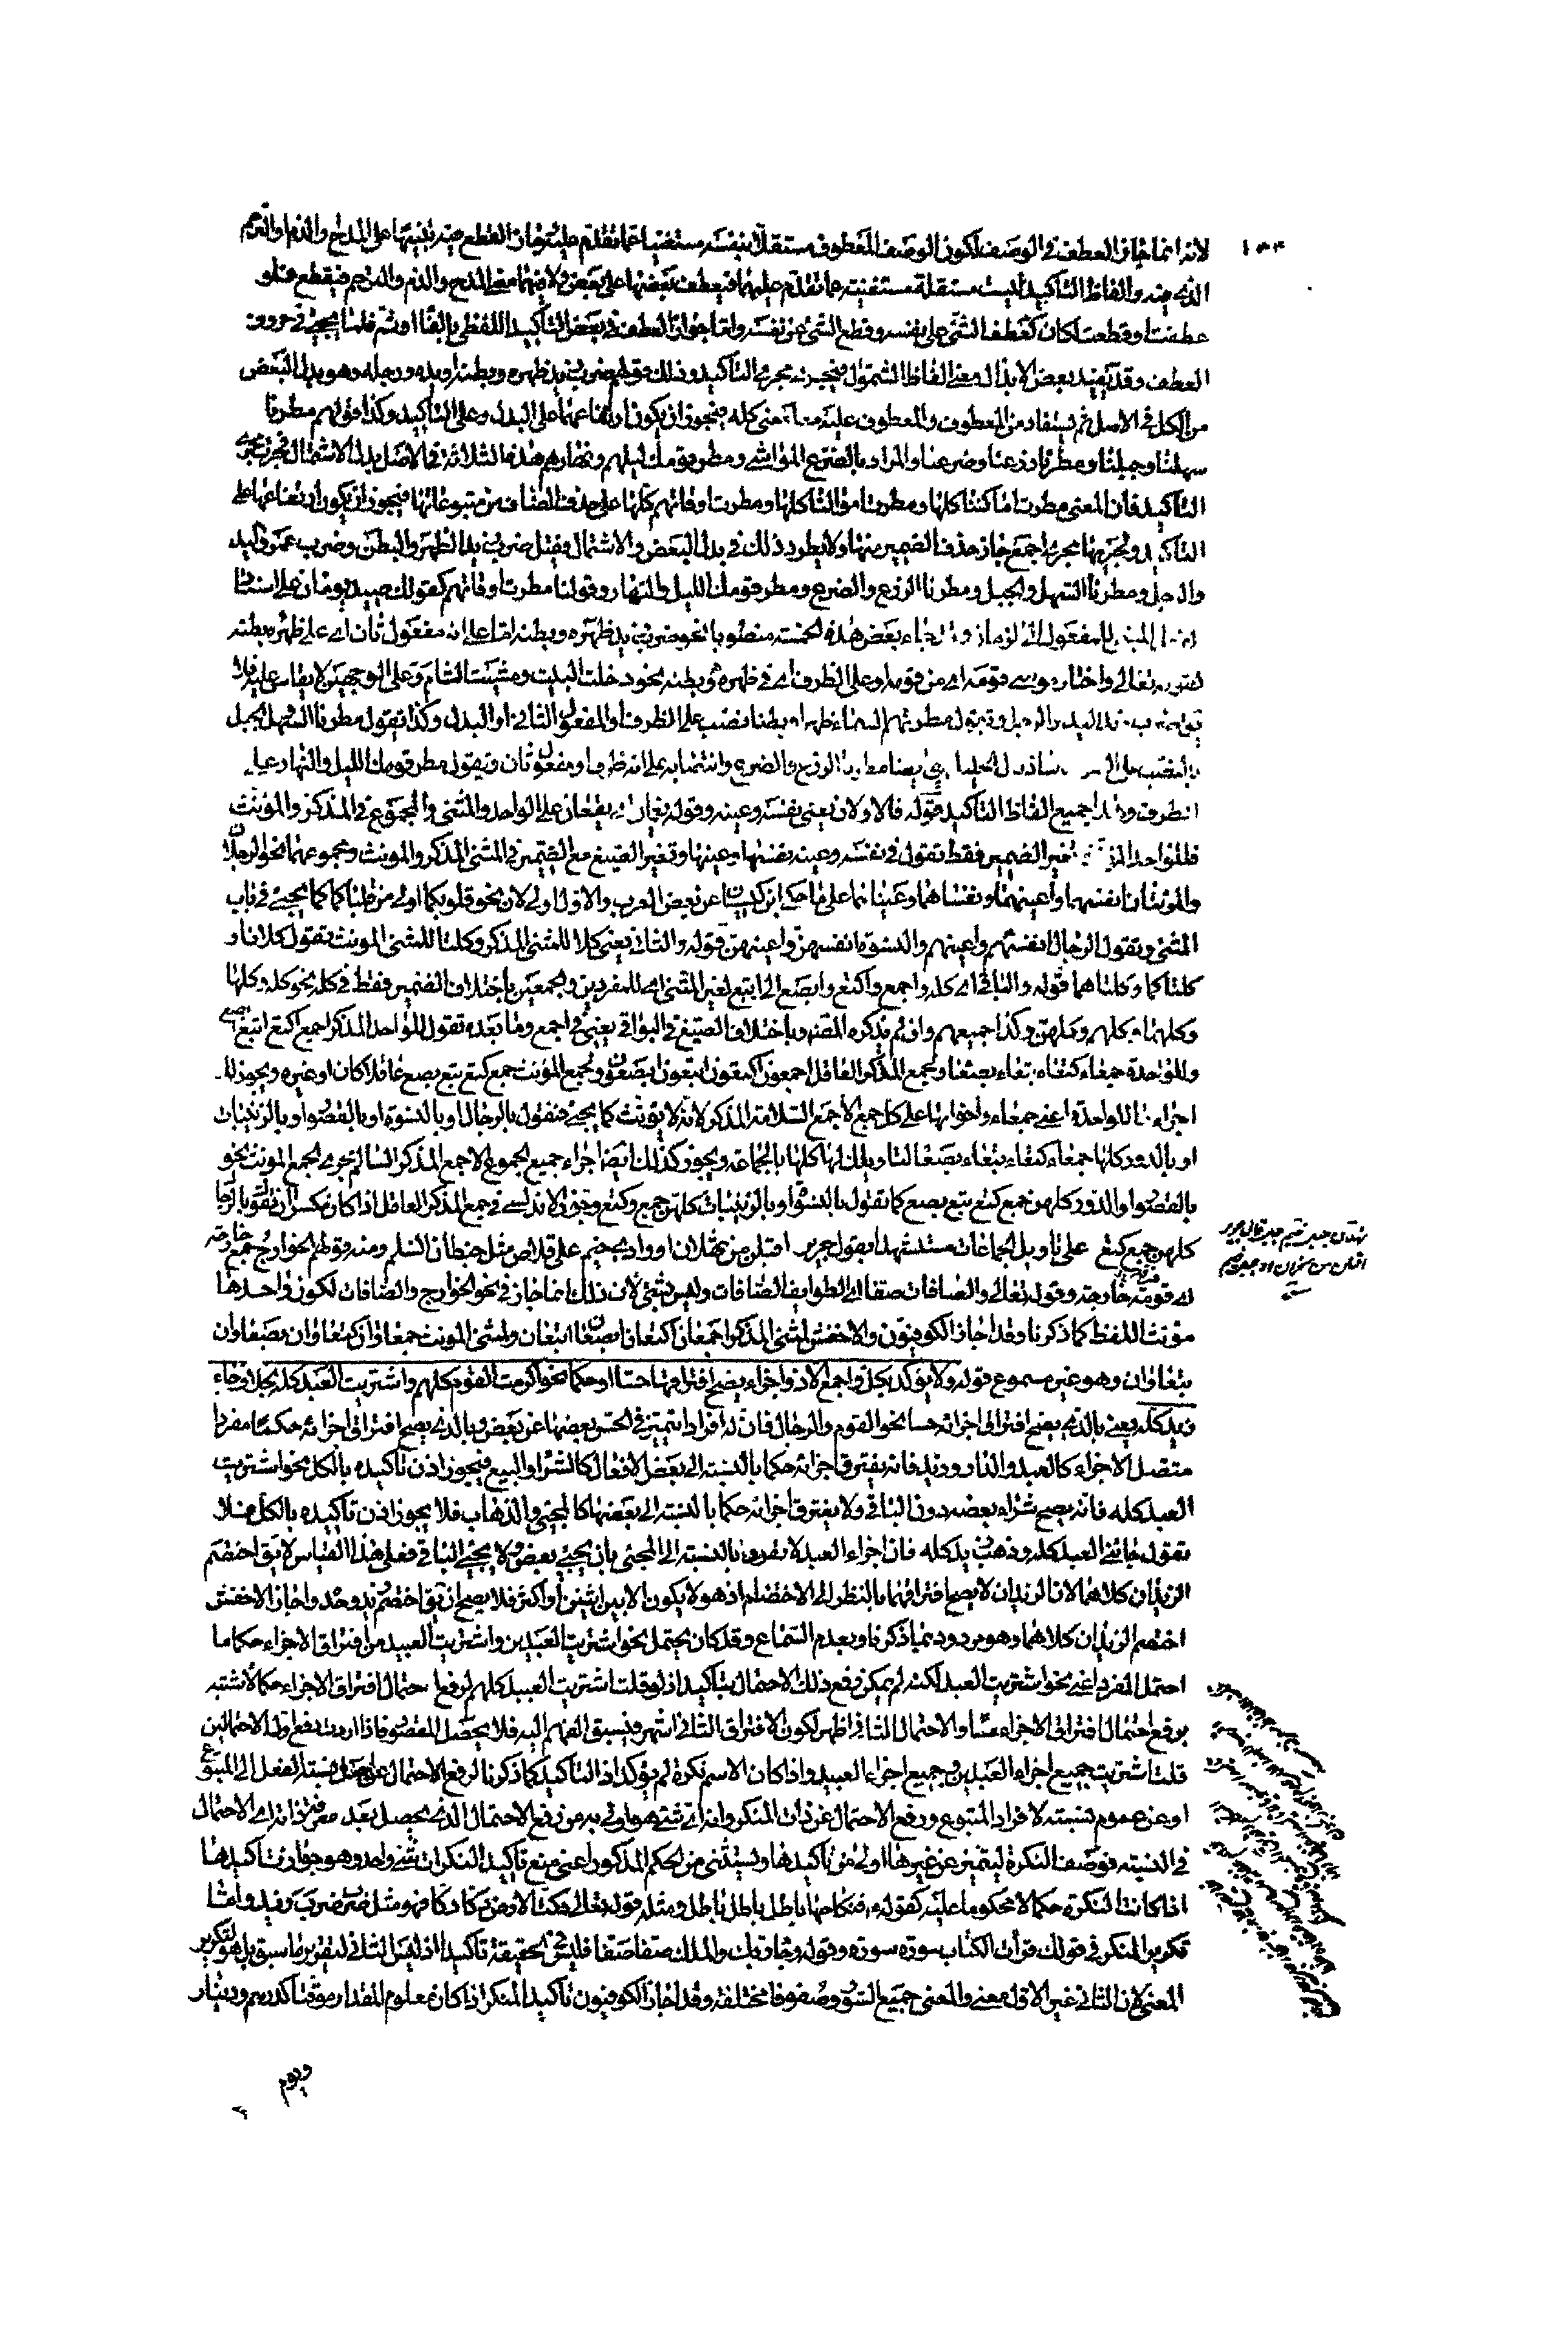 لانه انما جاز العطف في الوصف لكون الوصف المعطوف مستقلا بنفسه مستغنيا عما تقدم عليه وجاز القطع فيه تنبيها على المدح والذم او الترحم
الذي فيه والفاظ التأكيد ليست مستقلة مستغنية عما تقدم عليها فيعطف بعضها على بعض ولا فيها معنى المدح والذم والترحم فيقطع فلو
عطفت او قطعت لكان كعطف الشئ على نفسه وقطع الشئ عن نفسه واما جواز العطف في بعض التأكيد اللفظي بالفاء او ثم فلما يجيئ في حروف
العطف وقد يفيد بعض الابدال معنى الفاظ الشمول فيجري مجرى التأكيد وذلك قولهم ضرب زيد ظهره وبطنه او يده ورجله وهو بدل البعض
من الكل في الاصل ثم يستفاد من المعطوف والمعطوف عليه معا معنى كله فيجوز ان يكون ارتفاعهما على البدل وعلى التأكيد وكذا قولهم مطرنا
سهلنا وجبلنا ومطرنا زرعنا وضرعنا والمراد بالضرع المواشي ومطر قومك ليلهم ونهارهم هذه الثلاثة في الاصل بدل الاشتمال فجرت مجرى
التأكيد فان المعنى مطرت اماكننا كلها ومطرت اموالنا كلها ومطرت اوقاتهم كلها على حذف المضاف من متبوعاتها فيجوز ان يكون ارتفاعها على
التأكيد ولجريها مجرى اجمع جاز حذف الضمير منها ولا يطرد ذلك في بدل البعض والاشتمال فقيل ضرب زيد الظهر والبطن وضرب عمرو اليد
والرجل ومطرنا السهل والجبل ومطرنا الزرع والضرع ومطر قومك الليل والنهار وقولنا مطرت اوقاتهم كقولك صيد يومان على اسناد
المبني للمفعول الى الزمان وقد جاء بعض هذه الخمسة منصوبا نحو ضرب زيد ظهره وبطنه اما على انه مفعول ثان اي على ظهره وبطنه
كقوله تعالى واختار موسى قومه اي من قومه او على الظرف اي في ظهره وبطنه نحو دخلت البيت ومشيت الشام وعلى الوجهين لا يقاس عليه فلا
مطرتهم السماء ظهرا وبطنا فنصب على الظرف او المفعول الثاني او البدل وكذا تقول مطرنا السهل والجبل
الزرع والضرع وانتصابه على انه ظرف او مفعول ثان وتقول مطر قومك الليل والنهار على
الظرف جميع الفاظ التأكيد قوله فالاولان يعني نفسه وعينه وقوله يعمان اي يقعان على الواحد والمثنى والمجموع في المذكر والمؤنث
فللواحد الضمير فقط تقول في نفسه وعينه نفسها وعينها وتغير الصيغ مع الضمير في المثنى المذكر والمونث ومجموعهما نحو الرجلان
والمؤنثان انفسهما واعينهما ونفساهما وعيناهما على ما حكى ابن كيسان عن بعض العرب والاول اولى لان نحو قلوبكما اولى من قلباكما كما يجيئ في باب
المثنى وتقول الرجال انفسهم واعينهم والنسوة انفسهن واعينهن قوله والثاني يعني كلا للمثنى المذكر وكلتا للمثنى المونث تقول كلانا و
كلتاكما وكلتاهما قوله والباقي اي كله واجمع واكتع وابصع الى ابتع لغير المثنى اي للمفردين والجمعين باختلاف الضمير فقط في كله نحو كله وكلها
وكلهم وكلهن وكذا جميعهم وان لم يذكره المصنف وباختلاف الصيغ في البواقي يعني في اجمع وما بعده تقول للواحد المذكر اجمع اكتع ابتع ابصع
وللواحدة جمعاء كتعاء بتعاء بصعاء ولجمع المذكر العاقل اجمعون اكتعون ابتعون ابصعون ولجمع المؤنث جمع كتع بتع بصع عاقلا كان او غيره ويجوز لك
اجراء للواحدة اعني جمعاء واخواتها على كل جمع الا جمع السلامة المذكر لانه لا يؤنث كما يجيئ فتقول بالرجال او بالنسوة او بالقصور او بالزينبات
او بالدور كلها جمعاء كتعاء بتعاء بصعاء لتاويلك لها كلها بالجماعة ويجوز كذلك ايضا اجراء جميع الجموع الا جمع المذكر السالم مجرى الجمع المونث نحو
بالقصور او الدور كلهن جمع كتع بتع بصع كما تقول بالنسوة او بالزينبات كلهن جمع وكتع وجوز الاندلسي في جمع المذكر العاقل اذا كان مكسرا ان تقول بالرجال
كلهن جمع كتع على تاويل الجماعات مستشهدا بقول جرير اقبلن من ثهلان او وادي خيم على قلاص مثل خيطان السلم ومنه قولهم الخوارج جمع خارجة
اي فرقة خارجة وقوله تعالى والصافات صفا اي الطوايف الصافات وليس بشئ لان ذلك انما جاز في نحو الخوارج والصافات لكون واحدها
مؤنث اللفظ كما ذكرنا وقد اجاز الكوفيون والاخفش لمثنى المذكر اجمعان اكتعان ابصعان ابتعان ولمثنى المونث جمعاوان كتعاوان بصعاوان
بتعاوان وهو غير مسموع قوله ولا يؤكد بكل واجمع الا ذو اجزاء يصح افتراقها حسا او حكما نحو اكرمت القوم كلهم واشتريت العبد كله بخلاف جاء
زيد كله يعني بالذي يصح افتراق اجزائه حسا نحو القوم والرجال فان له افرادا يتميز في الحس بعضها عن بعض وبالذي يصح افتراق اجزائه حكما مفردا
متصل الاجزاء كالعبد والدار وزيد فانه يفترق اجزائه حكما بالنسبة الى بعض الافعال كالشراء والبيع فيجوز اذن تأكيده بالكل نحو اشتريت
العبد كله فانه يصح شراء بعضه دون الباقي ولا يفترق اجزائه حكما بالنسبة الى بعضها كالمجيئ والذهاب فلا يجوز اذن تأكيده بالكل فلا
تقول جائني العبد كله وذهب زيد كله فان اجزاء العبد لا تفترق بالنسبة الى المجئ بان يجيئ بعض ولا يجيئ الباقي فعلى هذا القياس لا يق اختصم
الزيدان كلاهما لان الزيدان لا يصح افتراقهما بالنظر الى الاختصام اذ هو لا يكون الا بين اثنين او اكثر فلا يصح ان يق اختصم زيد وحده واجاز الاخفش
اختصم الزيدان كلاهما وهو مردود بما ذكرنا وبعدم السماع وقد كان يحتمل نحو اشتريت العبدين واشتريت العبيد من افتراق الاجزاء حكما ما
احتمل المفرد اعني نحو اشتريت العبد لكنه لم يمكن رفع ذلك الاحتمال بتأكيد اذ لو قلت اشتريت العبيد كلهم لرفع احتمال افتراق الاجزاء حكما لاشتبه
برفع احتمال افتراق الاجزاء حسا والاحتمال الثاني اظهر لكون الافتراق الثاني اشهر فيسبق الفهم اليه فلا يحصل المقصود فاذا اردت رفع اول الاحتمالين
قلت اشتريت جميع اجزاء العبدين وجميع اجزاء العبيد واذا كان الاسم نكرة لم يؤكد اذ التأكيد كما ذكرنا لرفع الاحتمال عن اصل نسبة الفعل الى المتبوع
او عن عموم نسبته لافراد المتبوع ورفع الاحتمال عن ذات المنكر وانه اي شئ هو اولى به من رفع الاحتمال الذي يحصل بعد معرفة ذاته اي الاحتمال
في النسبة فوصف النكرة ليتميز عن غيرها اولى من تأكيدها ويستثنى من الحكم المذكور اعني منع تأكيد النكرات شئ واحد وهو جواز تأكيدها
اذا كانت النكرة حكما لا محكوما عليه كقوله فنكاحها باطل باطل باطل ومثله قوله تعالى دكت الارض دكا دكا فهو مثل ضرب ضرب زيد واما
تكرير المنكر في قولك قرأت الكتاب سورة سورة وقوله وجاء ربك والملك صفا صفا فليس في الحقيقة تأكيدا اذ ليس الثاني لتقرير ما سبق بل هو لتكرير
المعنى لان الثاني غير الاول معنى والمعنى جميع السور وصفوفا مختلفة وقد اجاز الكوفيون تأكيد المنكر اذا كان معلوم المقدار موقتا كدرهم ودينار
ويوم